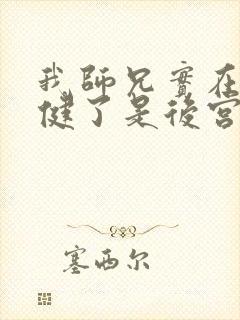 我師兄實在
健了是後宮
塞西尔